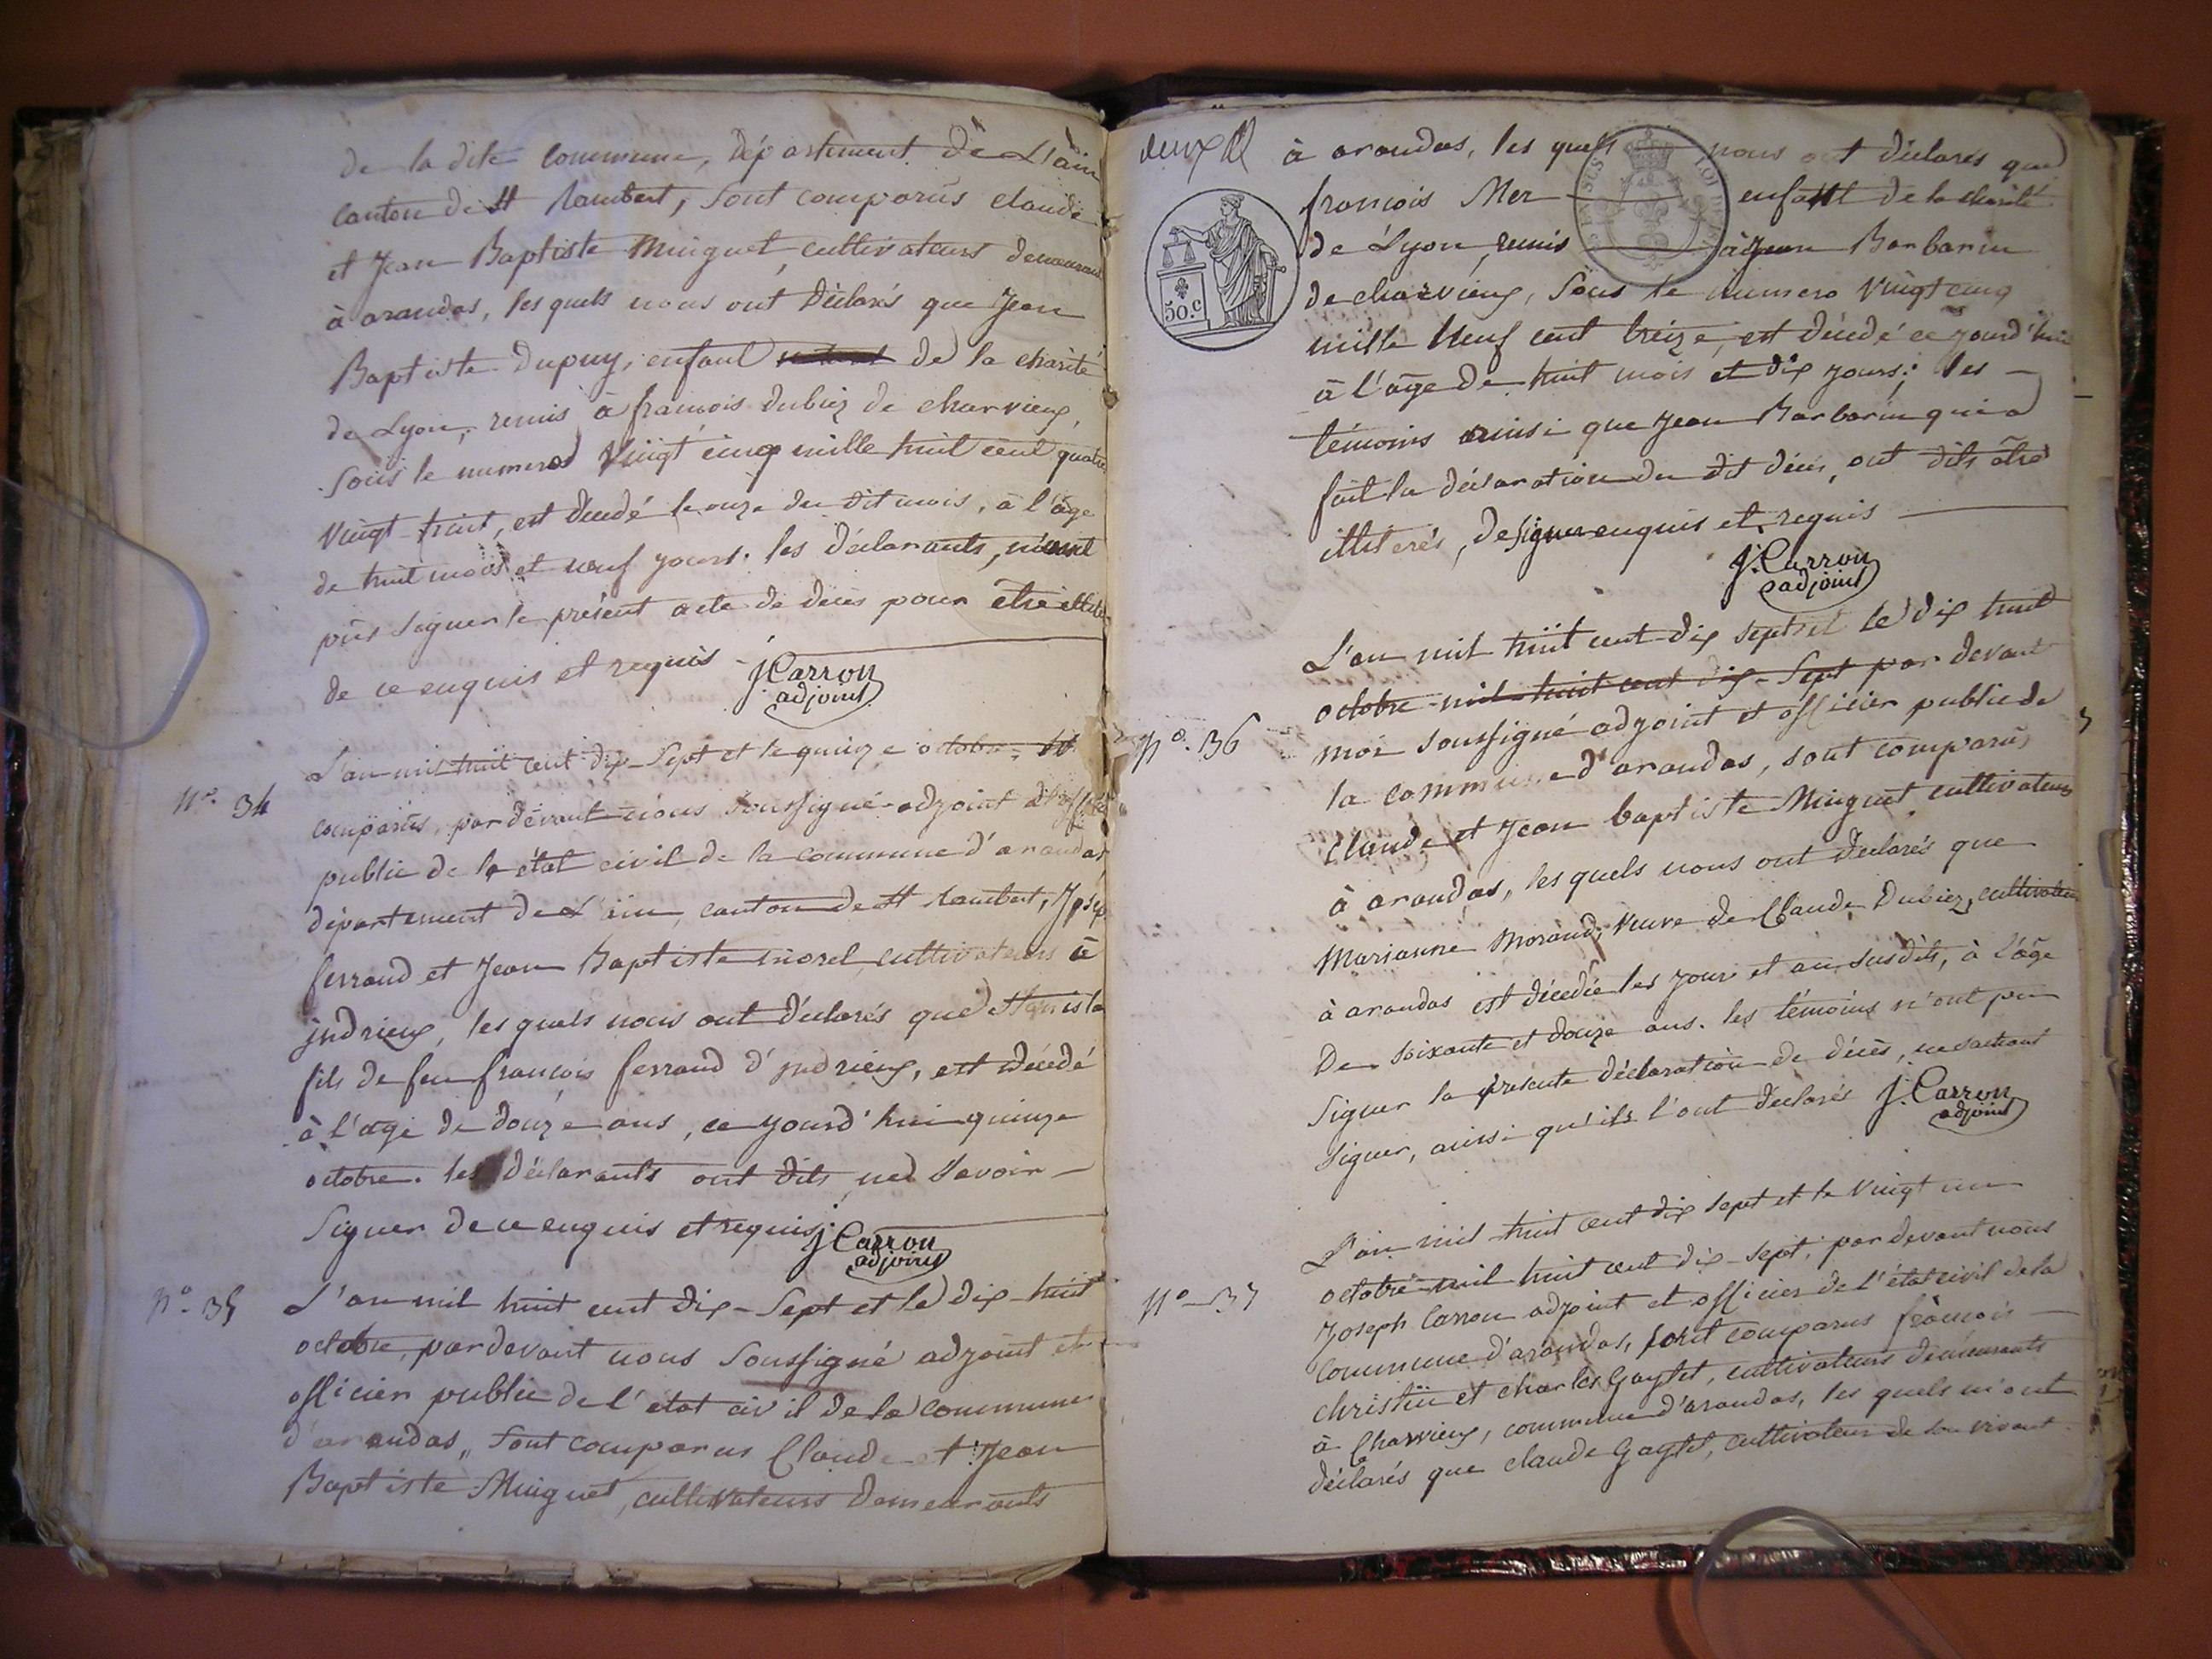 de la dite commune, département de L'ain
canton de St rambert, sont comparüs claude
et Jean Baptiste Minguet, cultivateurs demeurant
à arandas, les quels nous ont déclarés que Jean
Baptiste Dupuy, enfant de la charité
de Lyon, remis à francois dubiez de charvieux,
sous le numero vingt cinq mille huit cent quatre
vingt-huit, est décédé le onze du dit mois, à l'âge
de huit mois et neuf jours. les déclarants, n'ont
pus signer le présent acte de décès pour être
de ce enquis et requis
J. Carron
adjoint
N°. 34
L'an mil huit cent dix-sept et le quinze octobre
comparüs, par devant nous soussigné adjoint et
public de le état civil de la commune d'arandas
département de L'ain, canton de St rambert,
ferrand et Jean Baptiste morel cultivateurs à
indrieux, les quels nous ont déclarés que
fils de feu francois ferrand d'indrieux, est décédé
à l'age de douze ans, ce jourd'hui quinze
octobre. les déclarants ont dits ne savoir
signer de ce enquis et requis.
J. Carron
adjoint
N°. 35
L'an mil huit cent dix-sept et le dix-huit
octobre, par devant nous soussigné adjoint et
officier public de l'etat civil de la commune
d'arandas, sont comparus Claude et Jean
Baptiste Minguet, cultivateurs demeurants
deux
à arandas, les quels nous ont déclarés que
françois Mer enfant de la charité
de Lyon, remis à Jean Barbarin
de charvieux, sous le numero vingt cinq
mille neuf cent treize, est décédé ce jourd'hui
à l'âge de huit mois et dix jours; les
témoins ainsi que Jean Barbarin qui a
fait la déclaration du dit décès, ont dits être
illiterés, de signer enquis et requis
J. Carron
adjoint
50.c
N°. 36
L'an mil huit cent dix sept et le dix huit
octobre mil huit cent dix-sept par devant
moi soussigné adjoint et officier public de
la commune d'arandas, sont comparus
Claude et Jean baptiste Minguet cultivateurs
à arandas, les quels nous ont déclarés que
Marianne Morand, veuve de Claude Dubiez, cultivateur
à arandas est décédée les jour et an susdits, à l'âge
De soixante et douze ans. les témoins n'ont pu
signer la présente déclaration de décès, ne sachant
signer, ainsi qu'ils l'ont déclarés J. Carron
adjoint
N°. 37
L'an mil huit cent dix sept et le vingt un
octobre mil huit cent dix-sept, par devant nous
Joseph Carron adjoint et officier de l'état civil de la
commune d'arandas, sont comparus françois
christin et charles Gaylet, cultivateurs demeurants
à Charvieux, commune d'arandas, les quels m'ont
déclarés que claude Gaylet, cultivateur de son vivant